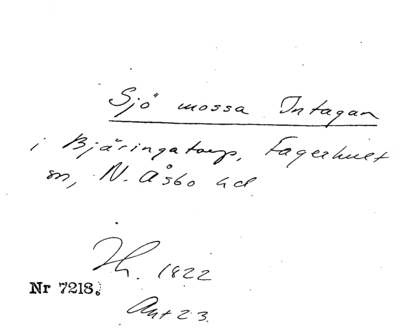 Sjö mossa Intagan
i Bjäringatorp, Fagerhult
sn, N. Åsbo hd
Th. 1822
Nr 7218.
Ant 23.